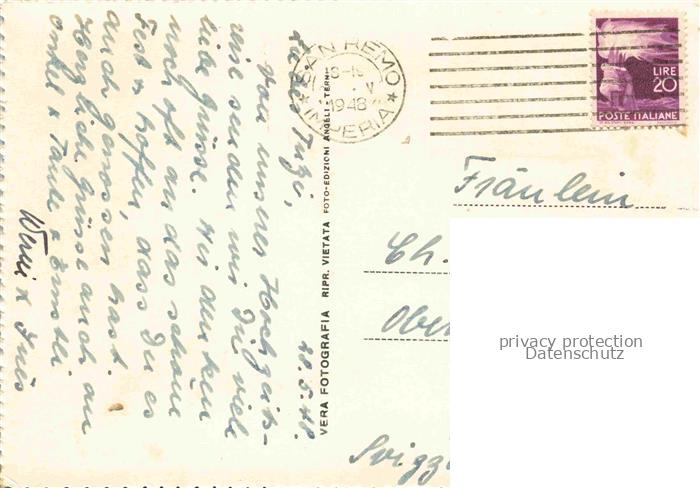 28.5.48.
Liebes Trixi,
Von unserer Hochzeits-
reise senden wir Dir viele
liebe Grüsse. Wir denken
noch oft an das schöne
Fest & hoffen, dass Du es
auch genossen hast.
Herzliche Grüsse auch an
Onkel & Tante & Ernstli.
Werni & Inès
VERA FOTOGRAFIA RIPR. VIETATA FOTO-EDIZIONI ANGELI - TERNI
SAN REMO
1948
IMPERIA
LIRE
20
POSTE ITALIANE
Fräulein
Ch.
Ober
Svizz
privacy protection
Datenschutz